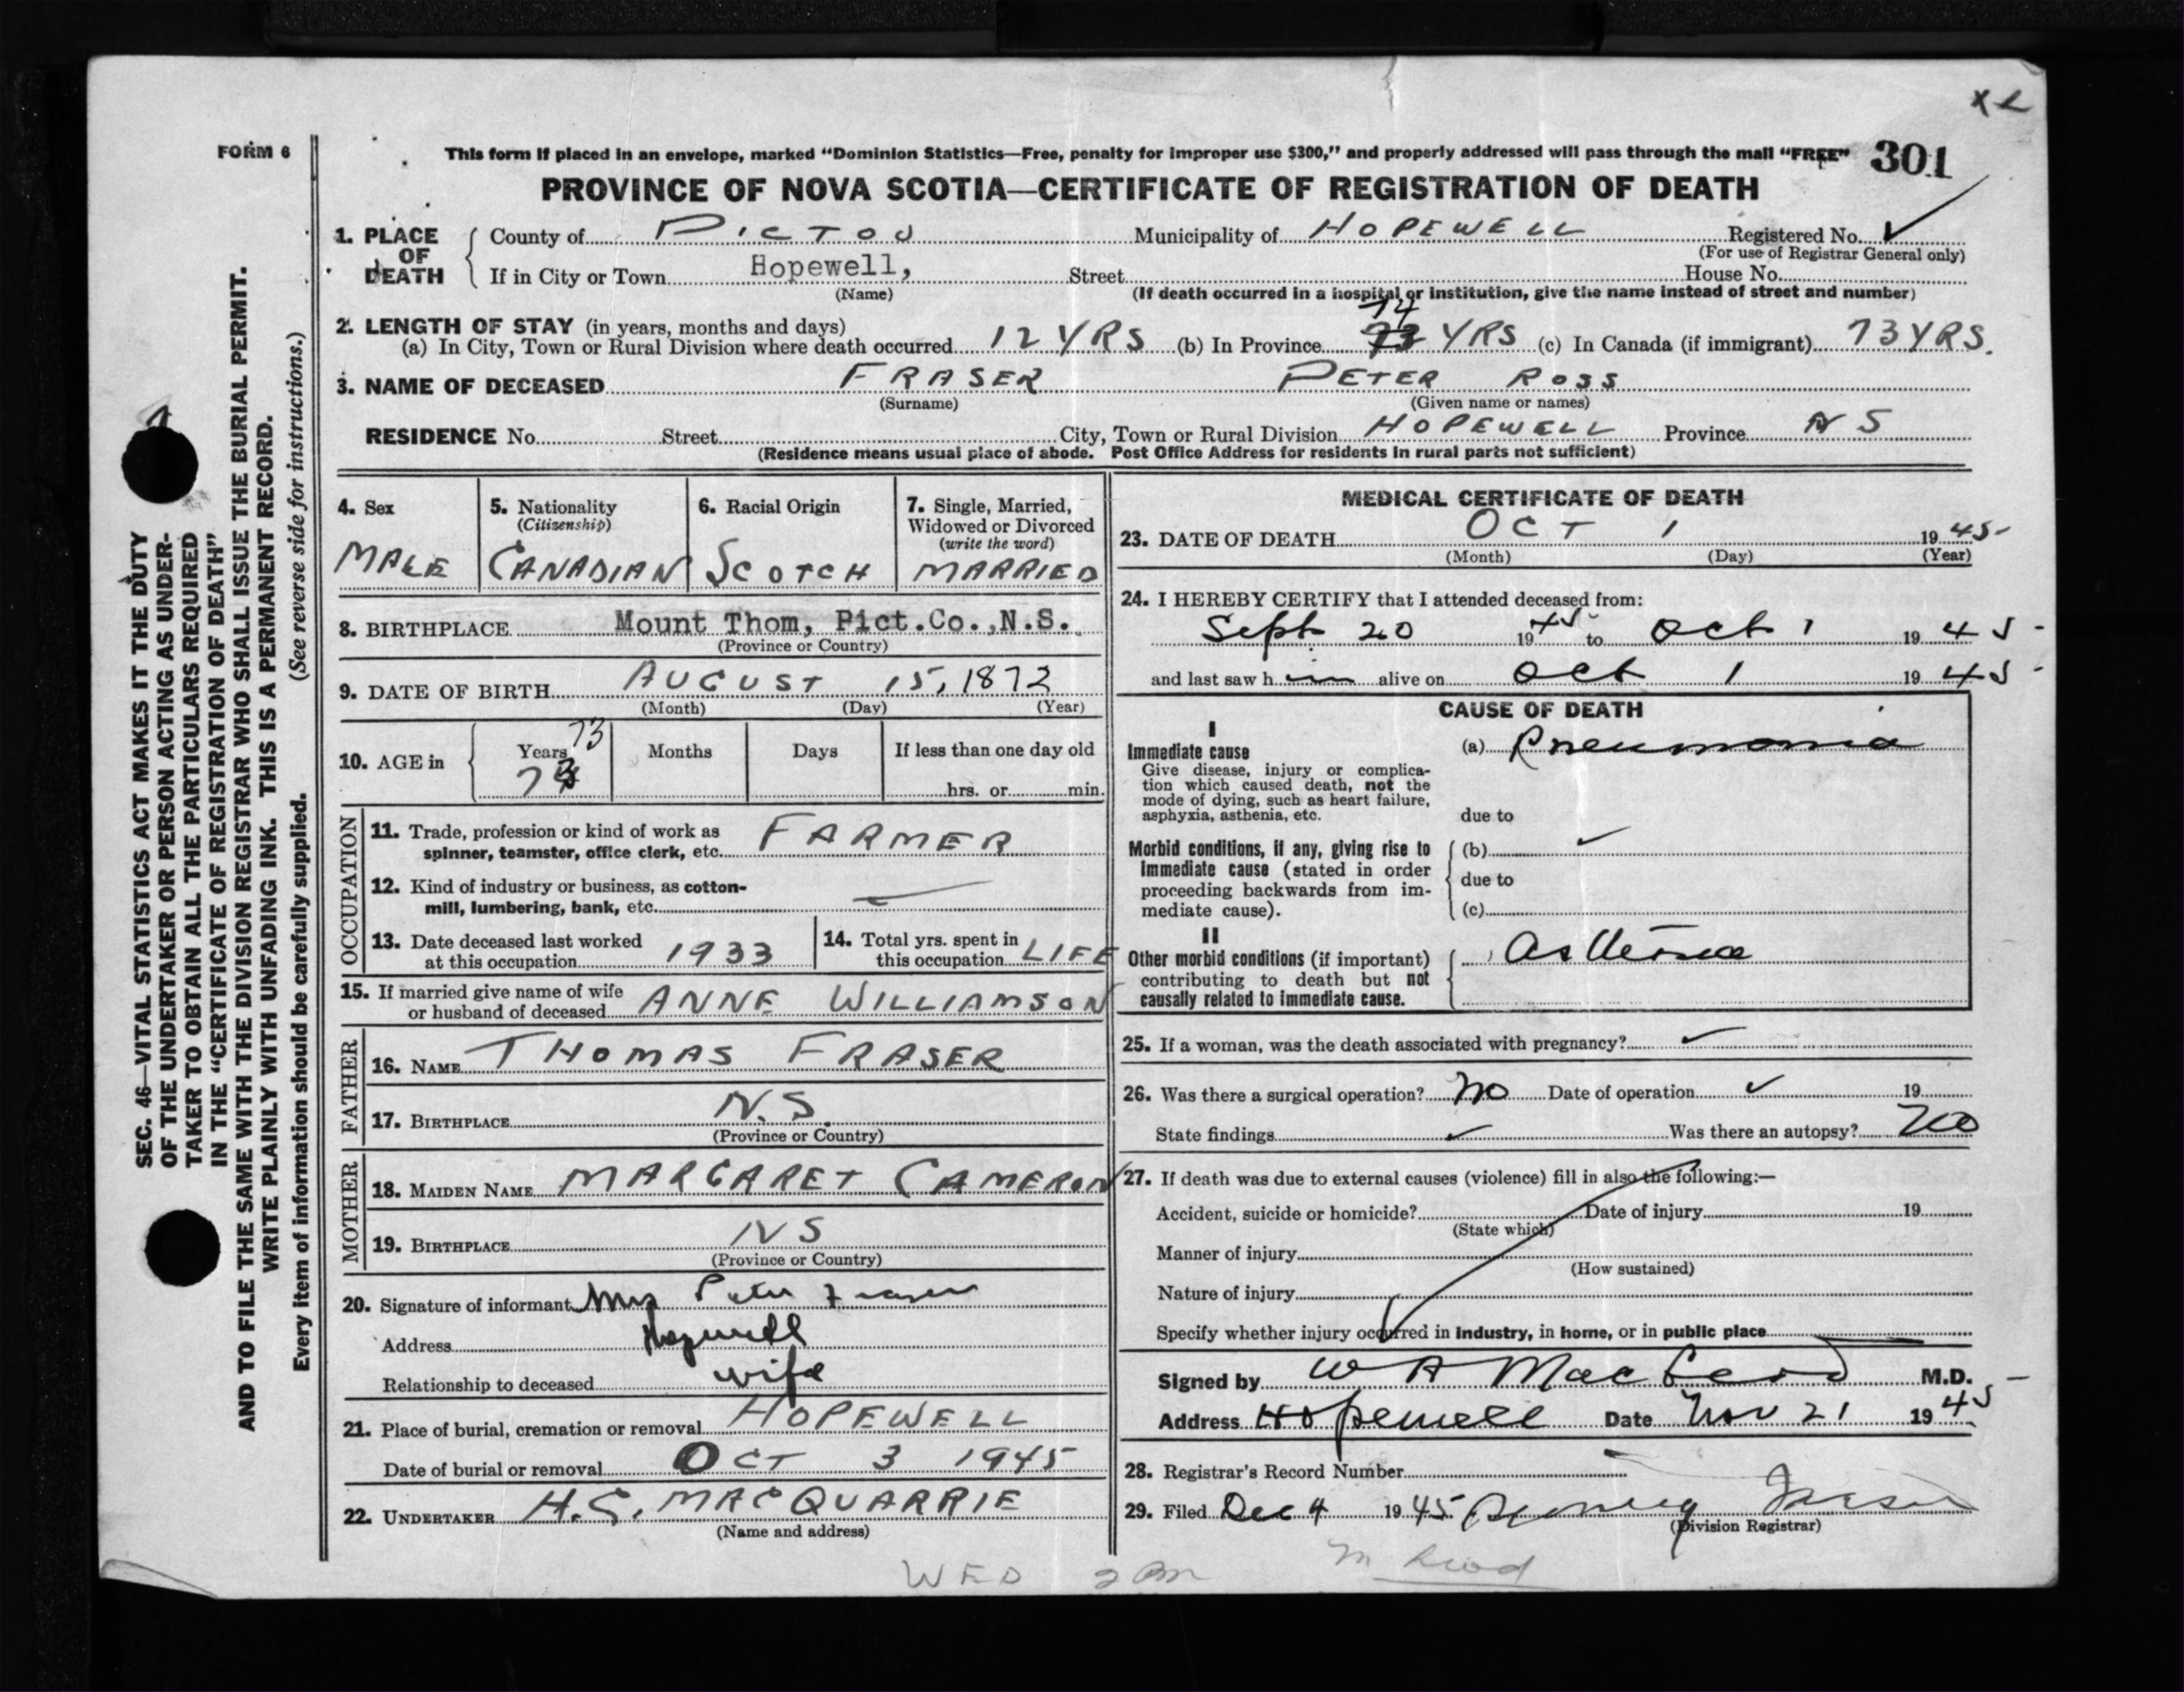 X L
FORM 6
This form if placed in an envelope, marked “Dominion Statistics—Free, penalty for improper use $300,” and properly addressed will pass through the mail “FREE” 301
PROVINCE OF NOVA SCOTIA—CERTIFICATE OF REGISTRATION OF DEATH
1. PLACE OF DEATH { County of PICTOU Municipality of HOPEWELL Registered No. ✓
(For use of Registrar General only)
If in City or Town Hopewell, Street House No.
(Name) (If death occurred in a hospital or institution, give the name instead of street and number)
2. LENGTH OF STAY (in years, months and days) 74
(a) In City, Town or Rural Division where death occurred 12 YRS (b) In Province 73 YRS (c) In Canada (if immigrant) 73 YRS.
3. NAME OF DECEASED FRASER PETER ROSS
(Surname) (Given name or names)
RESIDENCE No. Street City, Town or Rural Division HOPEWELL Province N S
(Residence means usual place of abode. Post Office Address for residents in rural parts not sufficient)
4. Sex
MALE
5. Nationality
(Citizenship)
CANADIAN
6. Racial Origin
SCOTCH
7. Single, Married,
Widowed or Divorced
(write the word)
MARRIED
8. BIRTHPLACE Mount Thom, Pict.Co.,N.S.
(Province or Country)
9. DATE OF BIRTH AUGUST 15, 1872
(Month) (Day) (Year)
10. AGE in { Years 73 Months Days If less than one day old
hrs. or min.
OCCUPATION
11. Trade, profession or kind of work as
spinner, teamster, office clerk, etc. FARMER
12. Kind of industry or business, as cotton-
mill, lumbering, bank, etc. —
13. Date deceased last worked
at this occupation 1933
14. Total yrs. spent in
this occupation LIFE
15. If married give name of wife
or husband of deceased ANNE WILLIAMSON
FATHER
16. NAME THOMAS FRASER
17. BIRTHPLACE N.S.
(Province or Country)
MOTHER
18. MAIDEN NAME MARGARET CAMERON
19. BIRTHPLACE NS
(Province or Country)
20. Signature of informant Mrs Peter Fraser
Address Hopewell
Relationship to deceased wife
21. Place of burial, cremation or removal HOPEWELL
Date of burial or removal OCT 3 1945
22. UNDERTAKER H.S. MACQUARRIE
(Name and address)
WED 2 PM
MEDICAL CERTIFICATE OF DEATH
23. DATE OF DEATH OCT 1 1945
(Month) (Day) (Year)
24. I HEREBY CERTIFY that I attended deceased from:
Sept 20 1945 to Oct 1 1945
and last saw him alive on Oct 1 1945
CAUSE OF DEATH
I
Immediate cause (a) Pneumonia
Give disease, injury or complica-
tion which caused death, not the
mode of dying, such as heart failure,
asphyxia, asthenia, etc. due to
Morbid conditions, if any, giving rise to
immediate cause (stated in order
proceeding backwards from im-
mediate cause).
(b) ✓
due to
(c)
II
Other morbid conditions (if important)
contributing to death but not
causally related to immediate cause.
25. If a woman, was the death associated with pregnancy? ✓
26. Was there a surgical operation? no Date of operation ✓ 19
State findings ✓ Was there an autopsy? no
27. If death was due to external causes (violence) fill in also the following:—
Accident, suicide or homicide? Date of injury 19
(State which)
Manner of injury
(How sustained)
Nature of injury
Specify whether injury occurred in industry, in home, or in public place
Signed by W A MacLeod M.D.
Address Hopewell Date Nov 21 1945
28. Registrar's Record Number
29. Filed Dec 4 1945 Fraser
(Division Registrar)
SEC. 46—VITAL STATISTICS ACT MAKES IT THE DUTY
OF THE UNDERTAKER OR PERSON ACTING AS UNDER-
TAKER TO OBTAIN ALL THE PARTICULARS REQUIRED
IN THE “CERTIFICATE OF REGISTRATION OF DEATH”
AND TO FILE THE SAME WITH THE DIVISION REGISTRAR WHO SHALL ISSUE THE BURIAL PERMIT.
WRITE PLAINLY WITH UNFADING INK. THIS IS A PERMANENT RECORD.
Every item of information should be carefully supplied. (See reverse side for instructions.)